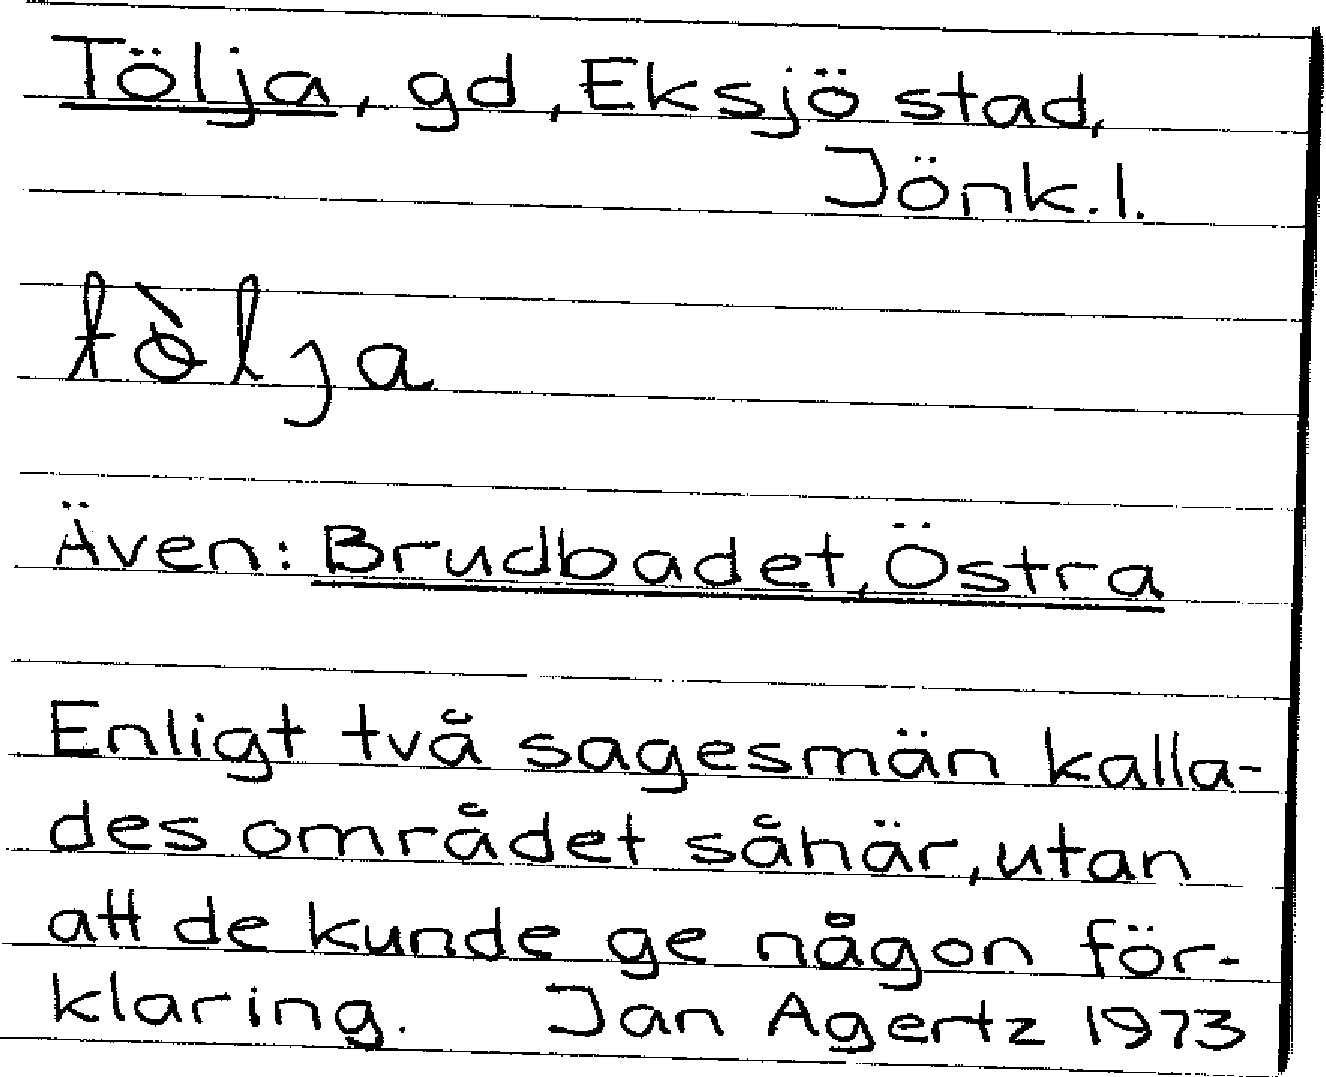 Tölja, gd, Eksjö stad,
Jönk.l.
tö̀lja
Även: Brudbadet, Östra
Enligt två sagesmän kalla-
des området såhär, utan
att de kunde ge någon för-
klaring. Jan Agertz 1973